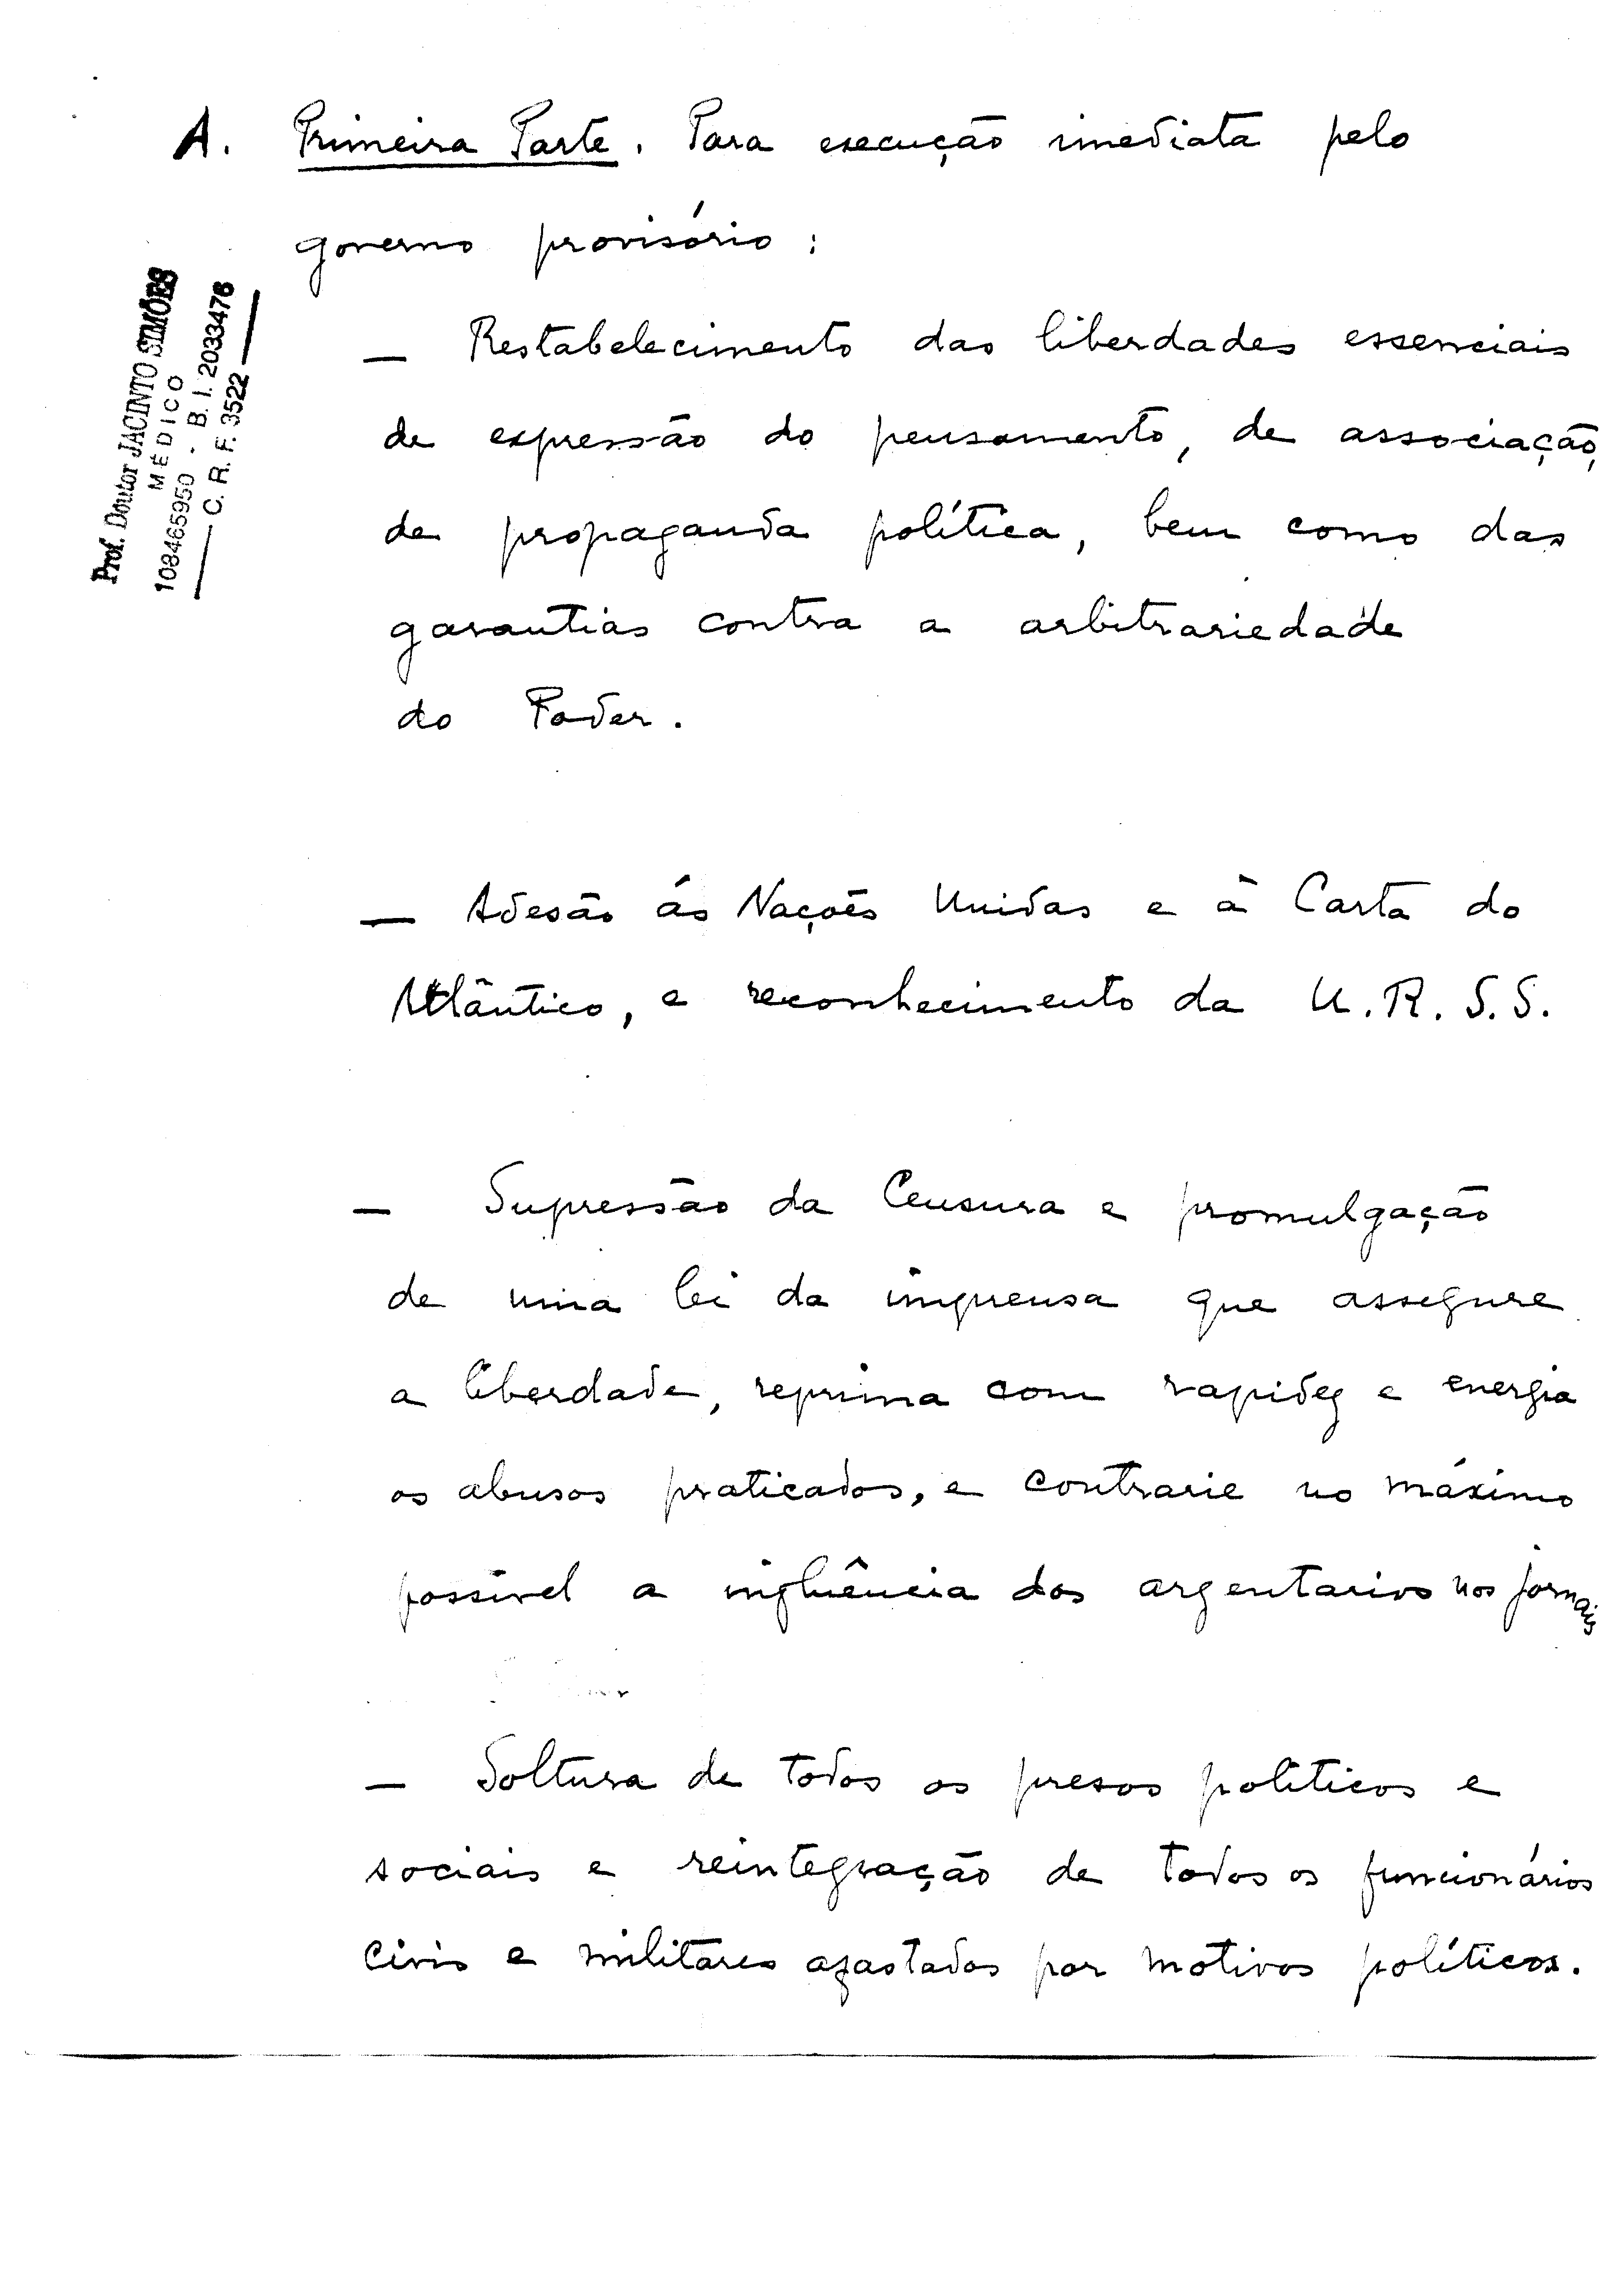 A. Primeira Parte. Para execução imediata pelo
governo provisório:
Prof. Doutor JACINTO SIMÕES
MÉDICO
108465950 - B. I. 2033476
C. R. F. 3522
— Restabelecimento das liberdades essenciais
de expressão do pensamento, de associação,
de propaganda política, bem como das
garantias contra a arbitrariedade
do Poder.
— Adesão ás Nações Unidas e à Carta do
Atlântico, e reconhecimento da U.R.S.S.
— Supressão da Censura e promulgação
de uma lei da imprensa que assegure
a liberdade, reprima com rapidez e energia
os abusos praticados, e contrarie no máximo
possivel a influência dos argentarios nos jornais
— Soltura de todos os presos politicos e
sociais e reintegração de todos os funcionários
civis e militares afastados por motivos políticos.